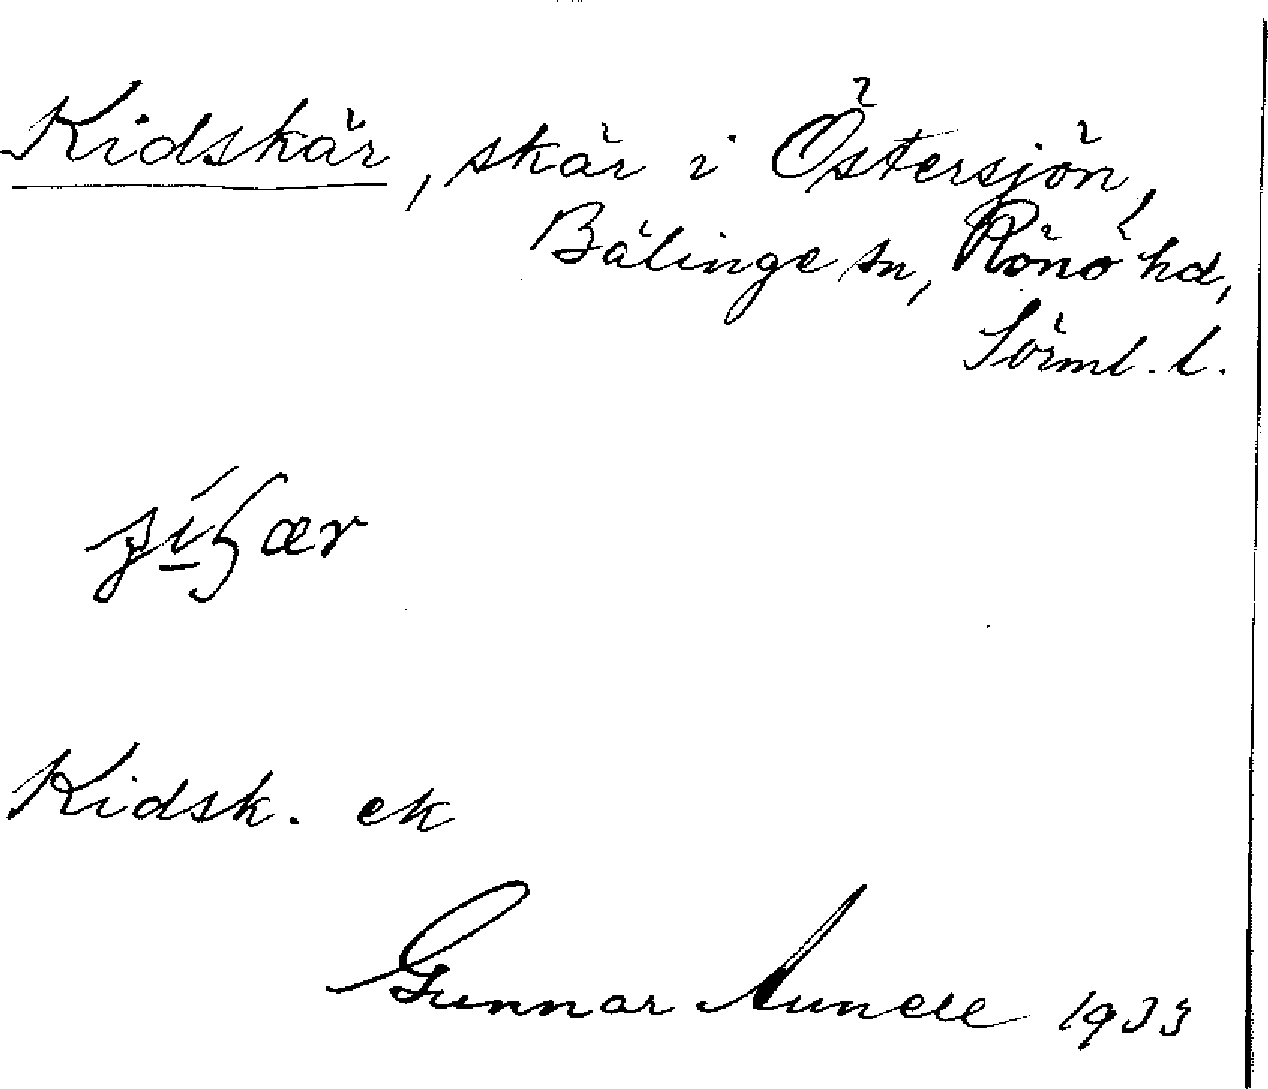 Kidskär, skär i Östersjön,
Bälinge sn, Rönö hd,
Sörml. l.
Kidsk. ek
Gunnar Aunell 1933